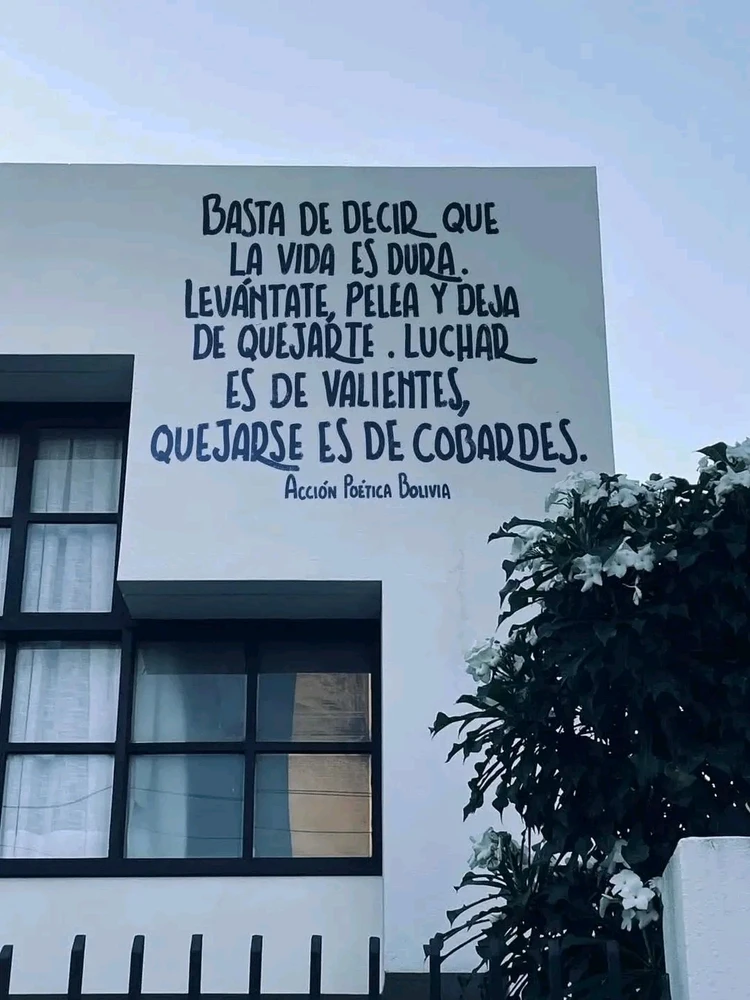 BASTA DE DECIR QUE
LA VIDA ES DURA.
LEVÁNTATE, PELEA Y DEJA
DE QUEJARTE. LUCHAR
ES DE VALIENTES,
QUEJARSE ES DE COBARDES.
ACCIÓN POÉTICA BOLIVIA